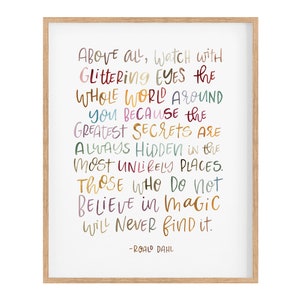 ABOVE ALL, WATCH WITH
GLITTERING EYES THE
WHOLE WORLD AROUND
YOU BECAUSE THE
GREATEST SECRETS ARE
ALWAYS HIDDEN IN THE
MOST UNLIKELY PLACES.
THOSE WHO DO NOT
BELIEVE IN MAGIC
WILL NEVER FIND IT.
-ROALD DAHL